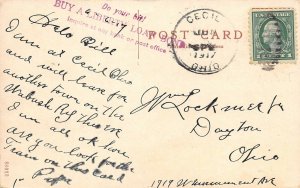 Do your bit!
BUY A LIBERTY LOAN BOND
Inquire at any bank or post office
POST CARD
CECIL
JUN
PM
1917
OHIO
Helo Bill
I am at Cecil Ohio
and will leave for
another town on the
Wabash Ry this eve
I am all ok how
are you look for the
Train on this card
Pipe
Wm Lockmer Jr
Dayton
Ohio
1919 W